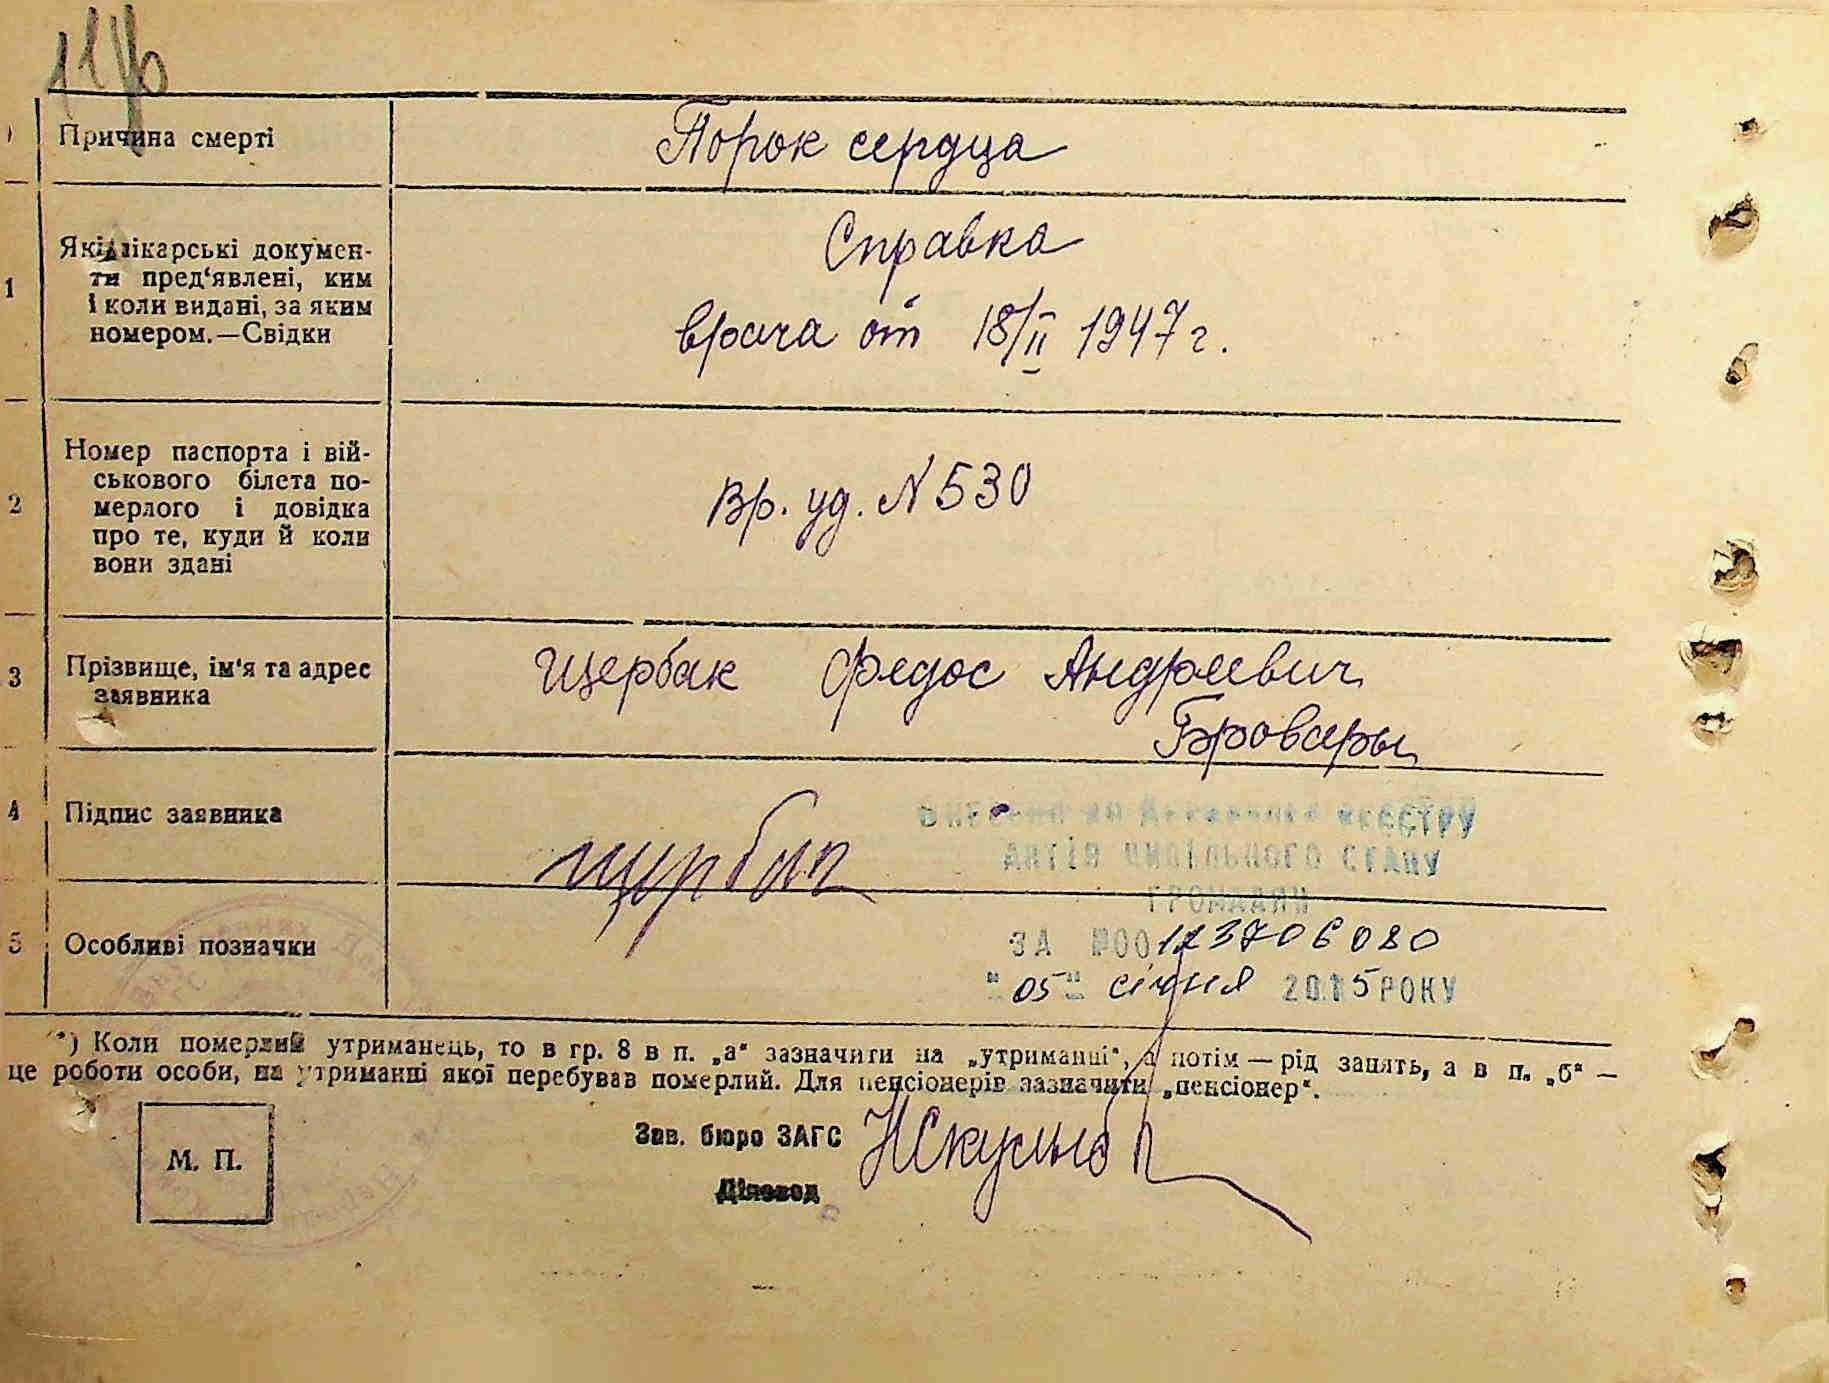 Причина смерті
Порок сердца
1
Які лікарські докумен-
ти пред‘явлені, ким
і коли видані, за яким
номером.—Свідки
Справка
врача от 18/II 1947 г.
2
Номер паспорта і вій-
ськового білета по-
мерлого і довідка
про те, куди й коли
вони здані
Вр. уд. N 530
3
Прізвище, ім‘я та адрес
заявника
Щербак Федос Андреевич
Бровары
4
Підпис заявника
Щербак
5
Особливі позначки
Внесено до Державного реєстру
актів цивільного стану
громадян
ЗА №00
"05" січня 2015 РОКУ
*) Коли померлий утриманець, то в гр. 8 в п. „а“ зазначити на „утриманні“, а потім — рід занять, а в п. „б“ —
це роботи особи, на утриманні якої перебував померлий. Для пенсіонерів зазначити „пенсіонер“.
М. П.
Зав. бюро ЗАГС
Діловод